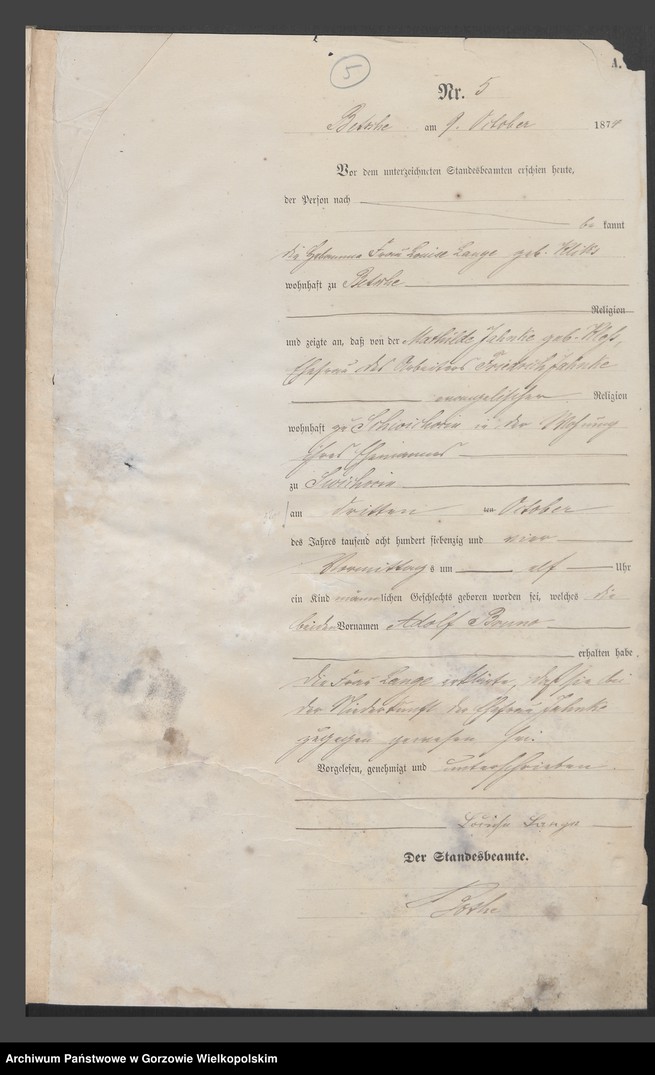 A.
5
Nr. 5
am 9. October 1874
Vor dem unterzeichneten Standesbeamten erschien heute,
der Person nach
be kannt
die Hebamme Frau Louise Lange geb.
wohnhaft zu
Religion
und zeigte an, daß von der Mathilde Jahnke geb.
Ehefrau des Arbeiters Friedrich Jahnke
evangelischer Religion
wohnhaft zu in der Wohnung
ihres Ehemannes
zu
am dritten ten October
des Jahres tausend acht hundert siebenzig und vier
Vormittag s um elf Uhr
ein Kind männlichen Geschlechts geboren worden sei, welches die
beiden Vornamen Adolf Bruno
erhalten habe
die Frau Lange erklärte, daß sie bei
der Niederkunft der Ehefrau Jahnke
zugegen gewesen sei.
Vorgelesen, genehmigt und unterschrieben.
Lange
Der Standesbeamte.
Archiwum Państwowe w Gorzowie Wielkopolskim